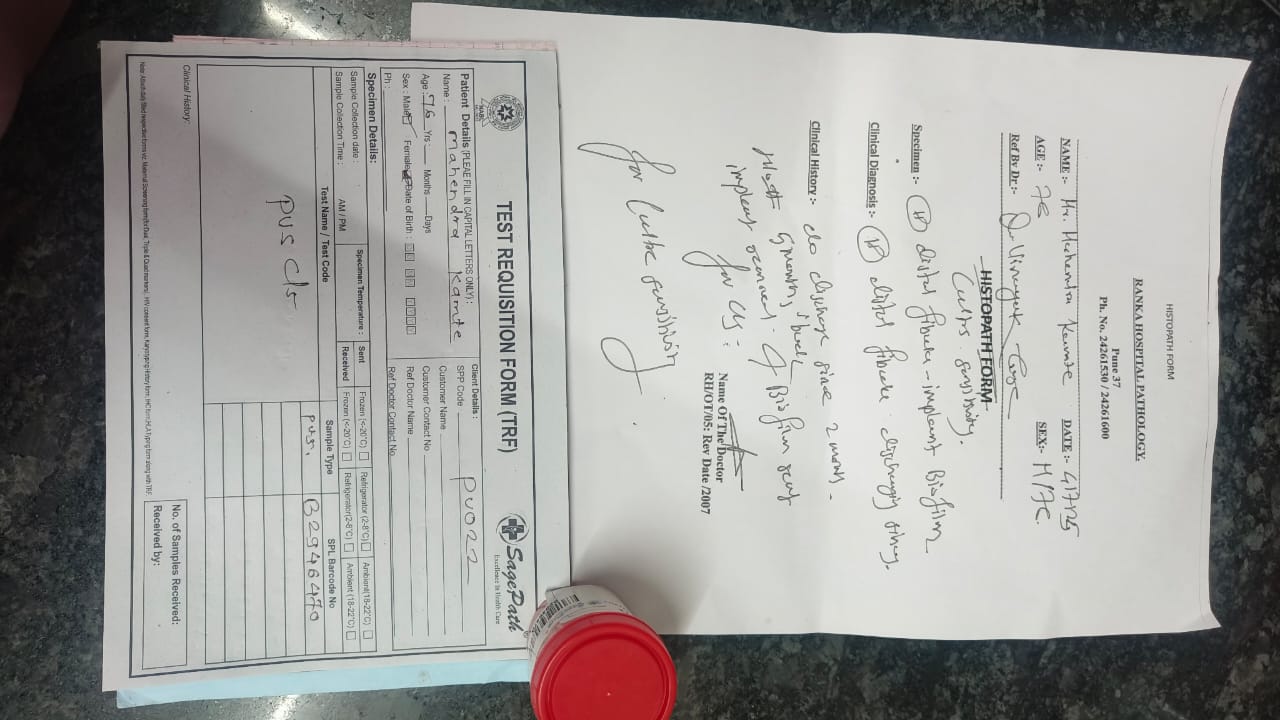 HISTOPATH FORM
RANKA HOSPITAL PATHOLOGY.
Pune 37
Ph. No. 24261530 / 24261600
NAME :- Mr. Mahendra Kamte DATE :- 4/7/25
AGE :- 76 SEX:- M/76
Ref By Dr :-
HISTOPATH FORM
Culture sensitivity.
Specimen :- distal fibula - implant Biofilm
Clinical Diagnosis :- distal fibula discharging sinus.
Clinical History :- c/o discharge since 2 months.
implant removed. Biofilm sent
for C/s.
Name Of The Doctor
RH/OT/05: Rev Date /2007
for Culture sensitivity
TEST REQUISITION FORM (TRF)
SagePath
Excellence In Health Care
Patient Details (PLEAE FILL IN CAPITAL LETTERS ONLY) :
Name : mahendra Kamte
Age : 76 Yrs : Months Days
Sex : Male Female Date of Birth :
Ph :
Client Details :
SPP Code PU022
Customer Name
Customer Contact No
Ref Doctor Name
Ref Doctor Contact No
Specimen Details:
Sample Collection date :
Sample Collection Time : AM / PM
Specimen Temperature :
Sent Frozen (<-20°C) Refrigerator (2-8°C) Ambient(18-22°C)
Received Frozen (<-20°C) Refrigerator(2-8°C) Ambient (18-22°C)
Test Name / Test Code Sample Type SPL Barcode No
Pus C/s pus. B2946470
Clinical History:
No. of Samples Received:
Received by: